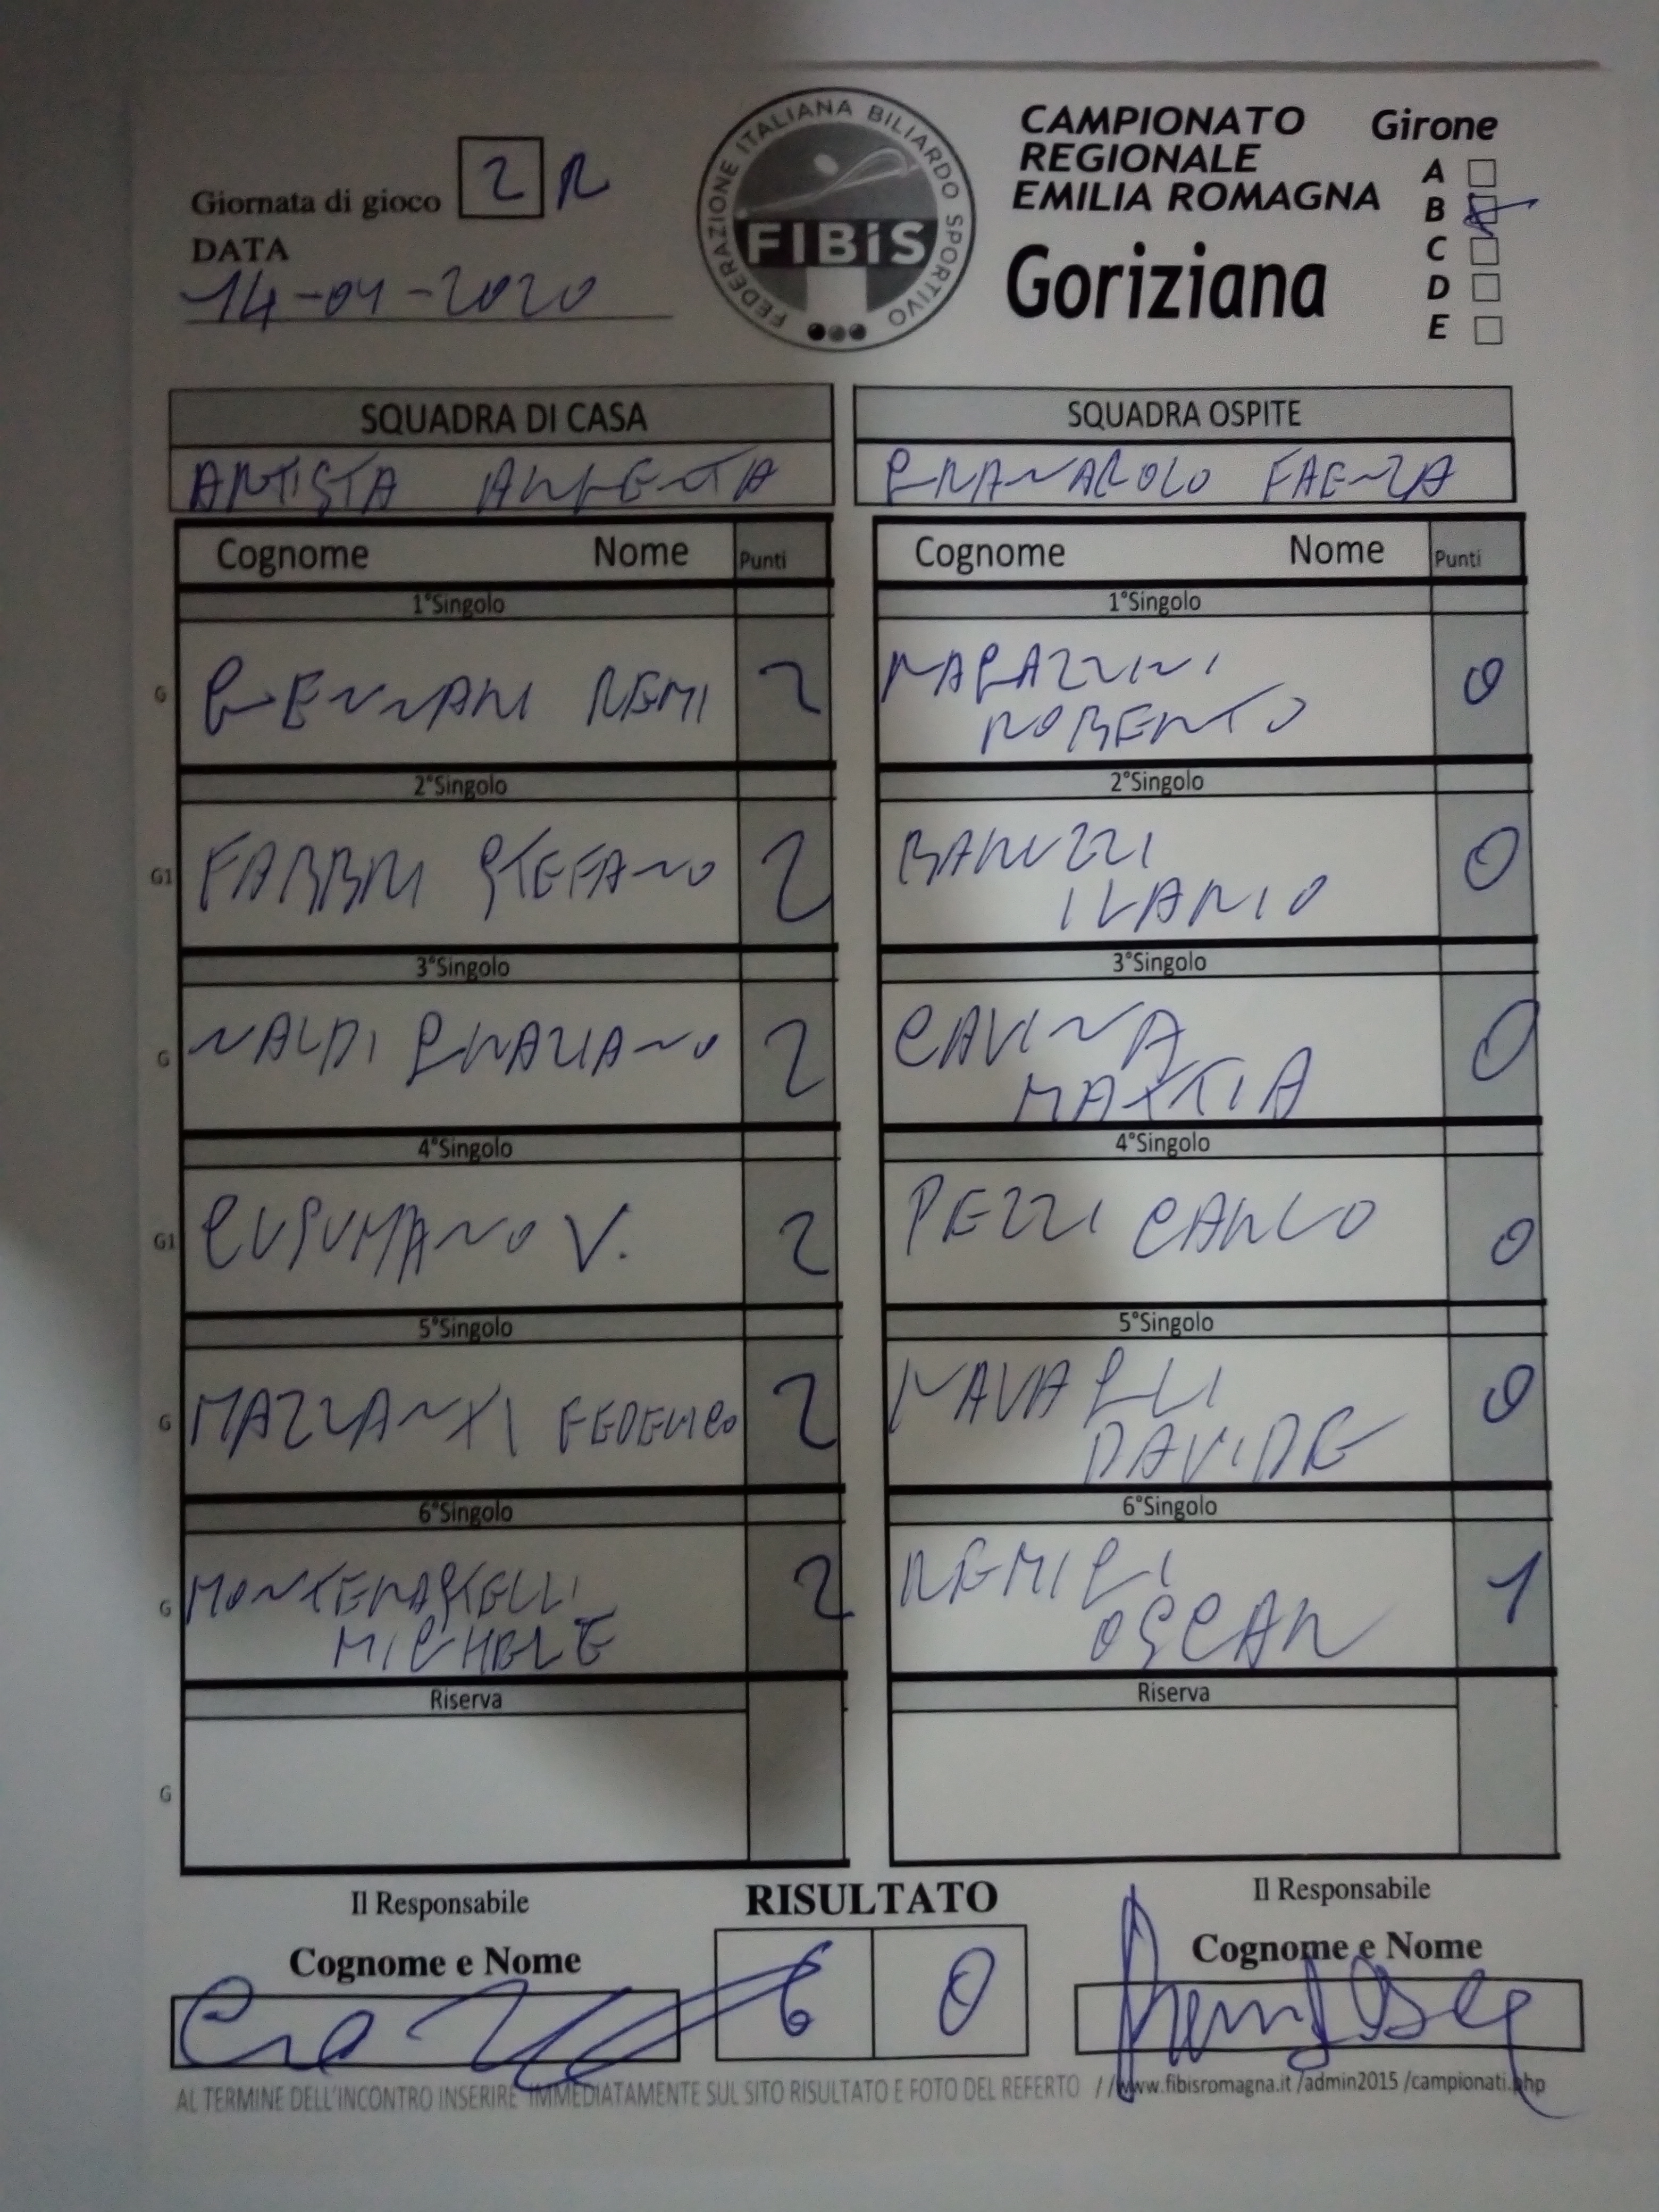 FEDERAZIONE ITALIANA BILIARDO SPORTIVO
FIBiS
CAMPIONATO
REGIONALE
EMILIA ROMAGNA
Goriziana
Girone
A
B
C
D
E
Giornata di gioco 2 R
DATA
14-01-2020
SQUADRA DI CASA
ARTISTA ARGENTA
SQUADRA OSPITE
GRANAROLO FAENZA
Cognome Nome Punti
Cognome Nome Punti
1°Singolo
1°Singolo
G
GENNARI REMI 2
MAGAZZINI
ROBERTO 0
2°Singolo
2°Singolo
G1
FABBRI STEFANO 2
BARUZZI
ILARIO 0
3°Singolo
3°Singolo
G
NALDI GRAZIANO 2
CAVINA
MATTIA 0
4°Singolo
4°Singolo
G1
CUSUMANO V. 2
PEZZI CARLO 0
5°Singolo
5°Singolo
G
MAZZANTI FEDERICO 2
DAVIDE 0
6°Singolo
6°Singolo
G
MONTERASTELLI
MICHELE 2
OSCAR 1
Riserva
Riserva
G
Il Responsabile
RISULTATO
Il Responsabile
Cognome e Nome
6 0
Cognome e Nome
AL TERMINE DELL'INCONTRO INSERIRE IMMEDIATAMENTE SUL SITO RISULTATO E FOTO DEL REFERTO //www.fibisromagna.it /admin2015 /campionati.php